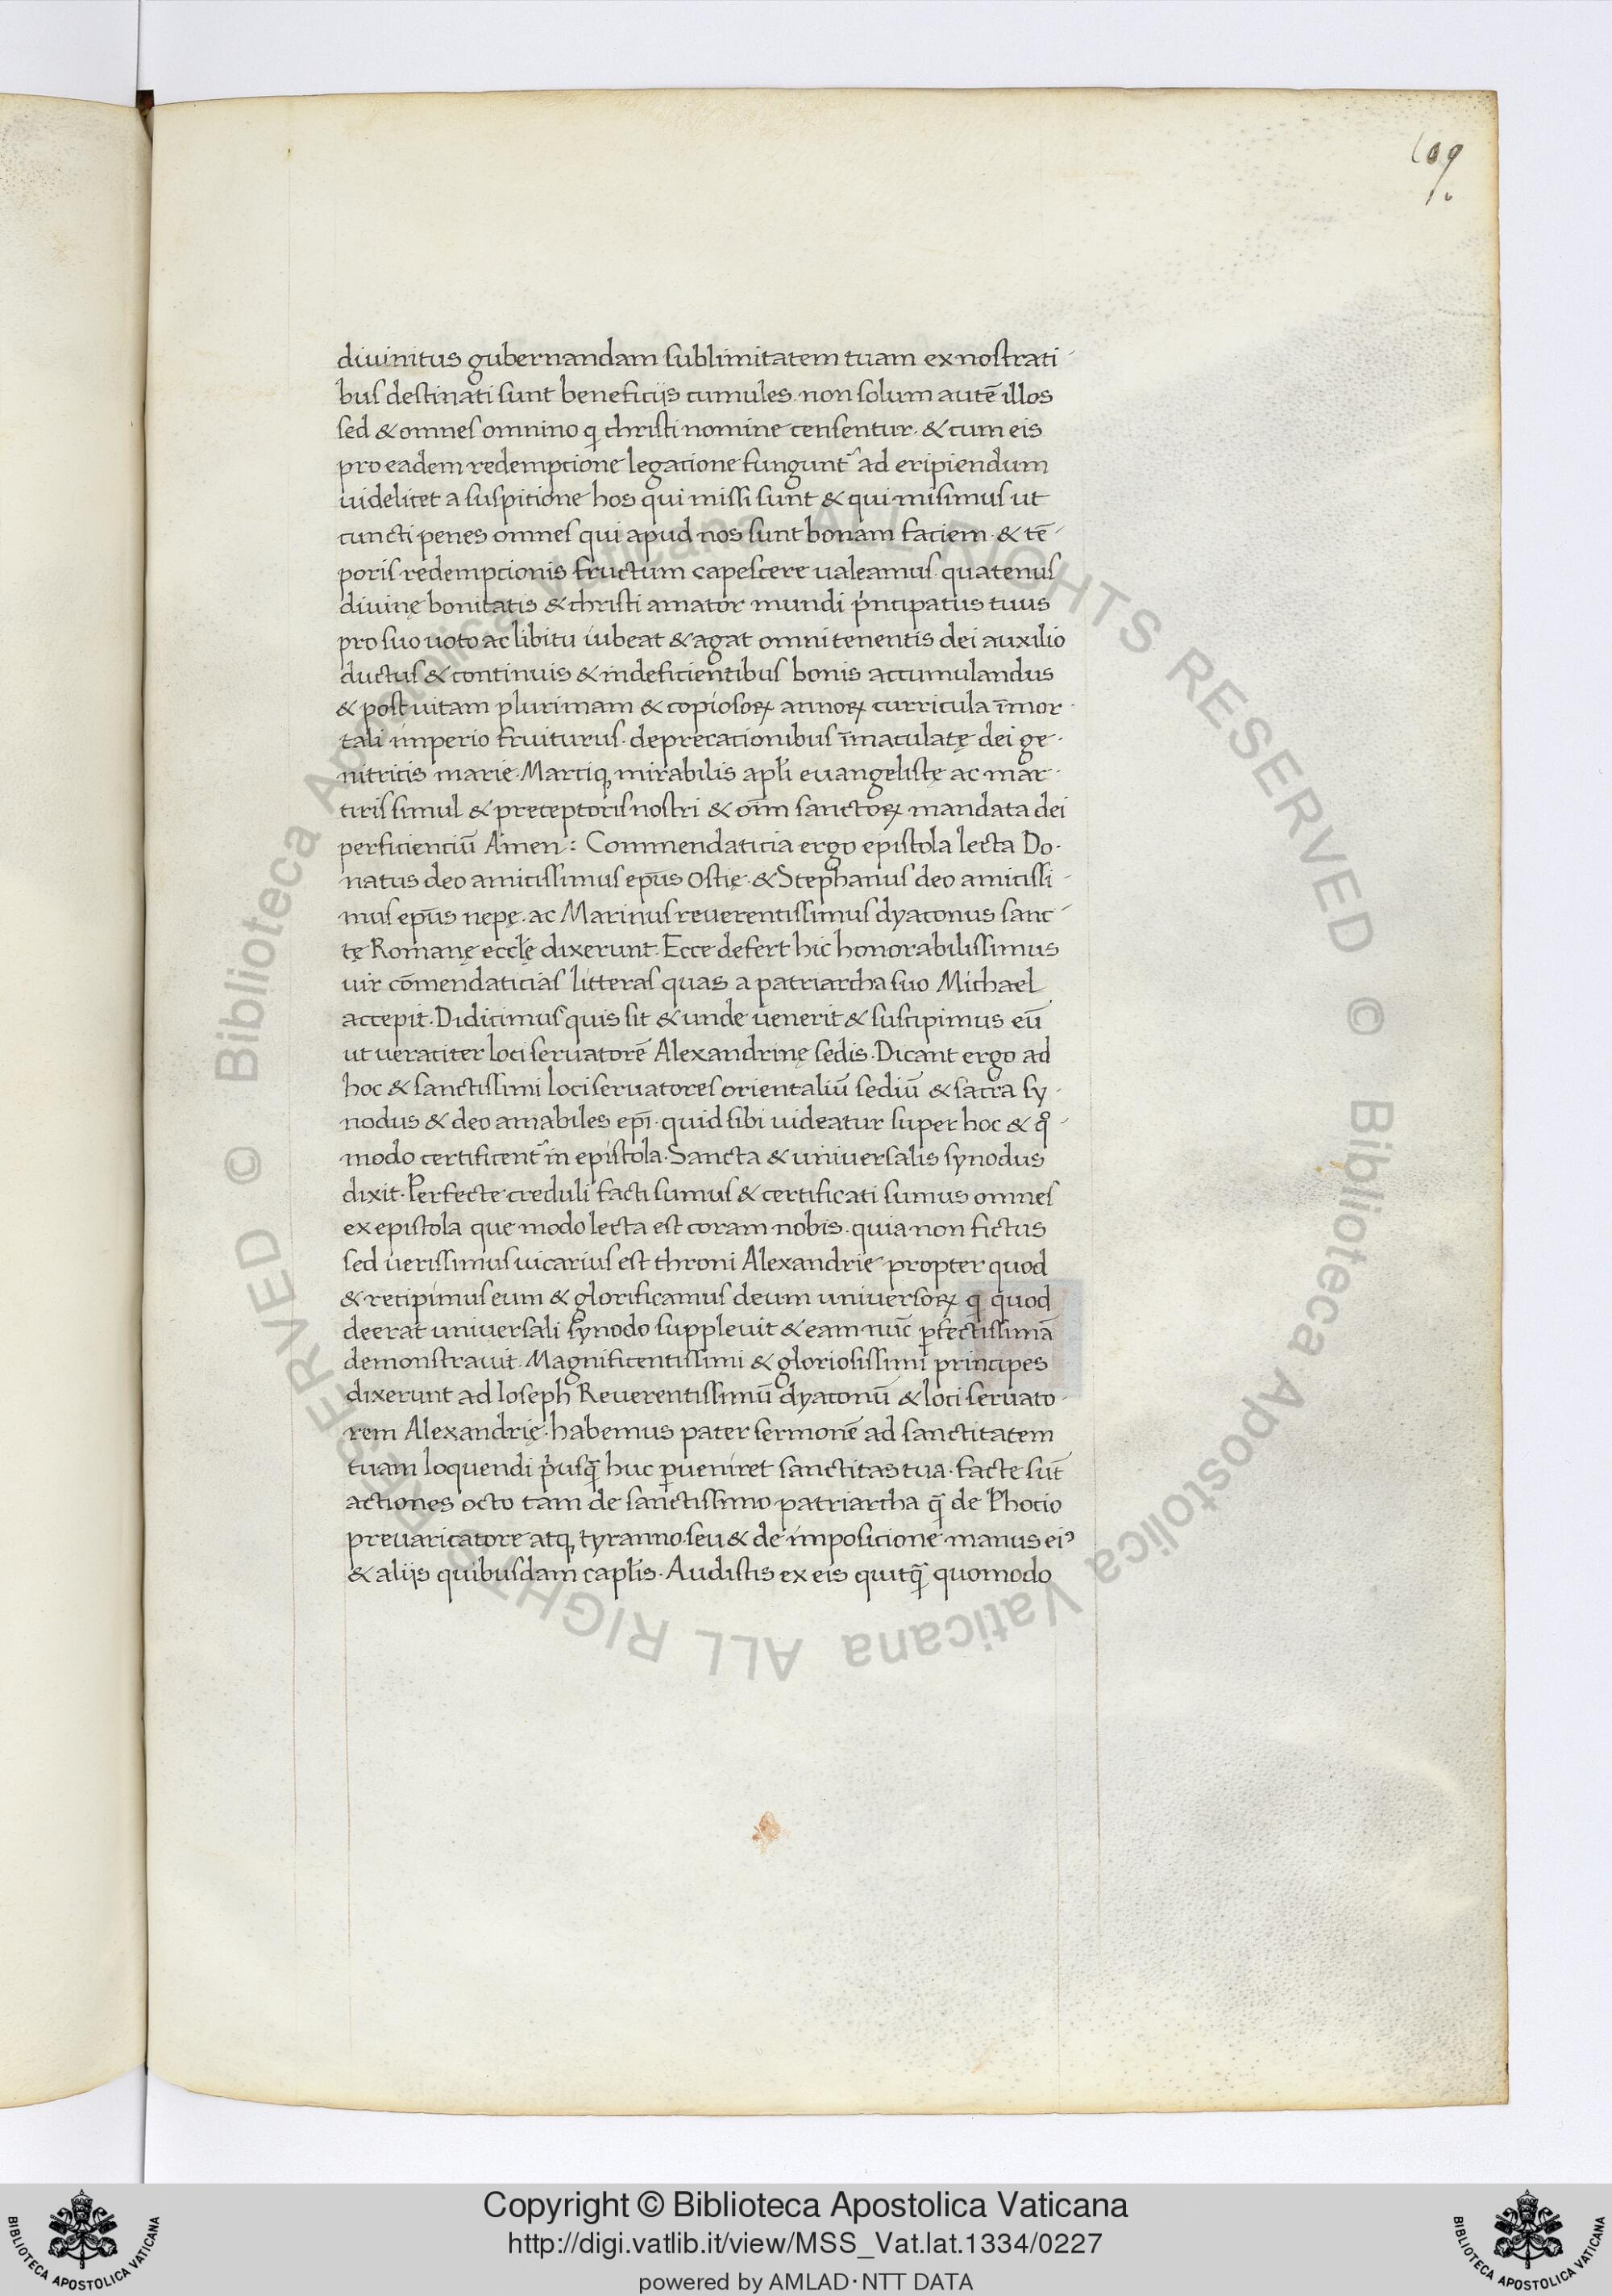 109
divinitus gubernandam sublimitatem tuam ex nostrati-
bus destinati sunt beneficijs cumules. non solum autē illos
sed & omnes omnino q christi nomine censentur. & cum eis
pro eadem redemptione legatione fungunt᷑ ad eripiendum
uidelicet a suspitione hos qui missi sunt & qui misimus ut
cuncti penes omnes qui apud nos sunt bonam faciem. & tē-
poris redemptionis fructum capescere ualeamus. quatenus
divinę bonitatis & christi amator mundi p̓ncipatus tuus
pro suo uoto ac libitu iubeat & agat omnitenentis dei auxilio
ductus & continuis & indeficientibus bonis accumulandus
& post uitam plurimam & copiosoꝝ annoꝝ curricula īmor-
tali imperio fruiturus. deprecationibus īmaculatę dei ge-
nitricis marie. Marciqꝫ mirabilis apl̄i euangelistę ac mar-
tiris simul & preceptoris nostri & oīm sanctoꝝ mandata dei
perficienciū Amen: Commendaticia ergo epistola lecta Do-
natus deo amicissimus ep̄us Ostię. & Stephanus deo amicissi-
mus ep̄us nepę. ac Marinus reuerentissimus dyaconus sanc-
tę Romanę ecclę dixerunt. Ecce defert hic honorabilissimus
uir cōmendaticias litteras quas a patriarcha suo Michael
accepit. Didicimus quis sit & unde uenerit & suscipimus eū
ut ueraciter loci seruatorē Alexandrinę sedis. Dicant ergo ad
hoc & sanctissimi loci seruatores orientaliū sediū & sacra sy-
nodus & deo amabiles ep̄i. quid sibi uideatur super hoc & qͦ-
modo certificent᷑ in epistola. Sancta & uniuersalis synodus
dixit. Perfecte creduli facti sumus & certificati sumus omnes
ex epistola que modo lecta est coram nobis. quia non fictus
sed uerissimus uicarius est throni Alexandrie propter quod
& recipimus eum & glorificamus deum uniuersoꝝ q quod
deerat uniuersali synodo suppleuit & eam nūc ꝑfectissimā
demonstrauit. Magnificentissimi & gloriosissimi principes
dixerunt ad Ioseph Reuerentissimū dyaconū & loci seruato-
rem Alexandrię. habemus pater sermonē ad sanctitatem
tuam loquendi p̓usq̄ huc ꝑueniret sanctitas tua. facte sūt
actiones octo tam de sanctissimo patriarcha q̄ de Photio
preuaricatore atqꝫ tyranno. seu & de impositione manus eiꝰ
& alijs quibusdam capl̄is. Audistis ex eis quicq̄ quomodo
© Biblioteca Apostolica Vaticana ALL RIGHTS RESERVED
© Biblioteca Apostolica Vaticana ALL RIGHTS RESERVED
BIBLIOTECA APOSTOLICA VATICANA
Copyright © Biblioteca Apostolica Vaticana
http://digi.vatlib.it/view/MSS_Vat.lat.1334/0227
powered by AMLAD·NTT DATA
BIBLIOTECA APOSTOLICA VATICANA